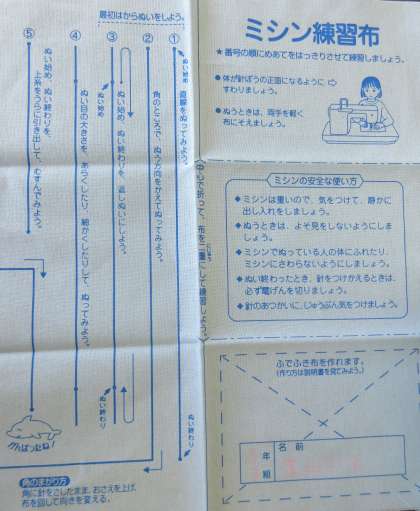 ミシン練習布
★番号の順にめあてをはっきりさせて練習しましょう。
●体が針ぼうの正面になるように⇨
すわりましょう。
●ぬうときは、両手を軽く
布にそえましょう。
ミシンの安全な使い方
◆ミシンは重いので、気をつけて、静かに
出し入れをしましょう。
◆ぬうときは、よそ見をしないようにしま
しょう。
◆ミシンでぬっている人の体にふれたり、
ミシンにさわらないようにしましょう。
◆ぬい終わったとき、針をつけかえるときは、
必ず電げんを切りましょう。
◆針のあつかいに、じゅうぶん気をつけましょう。
ふでふき布を作れます。
(作り方は説明書を見てみよう。)
年
組
名前
中心で折って、布を二重にして練習しよう。
最初はからぬいをしよう。
①
ぬい始め
直線をぬってみよう。
ぬい終わり
②
角のところで、ぬう方向をかえてぬってみよう。
③
ぬい始め
ぬい始め、ぬい終わりを、返しぬいにしよう。
ぬい終わり
④
ぬい目の大きさを、あらくしたり、細かくしたりして、ぬってみよう。
⑤
ぬい始め、ぬい終わりを、
上糸をうらに引き出して、むすんでみよう。
がんばったね!
角のまがり方
角に針をさしたまま、おさえを上げ、
布を回して向きを変える。